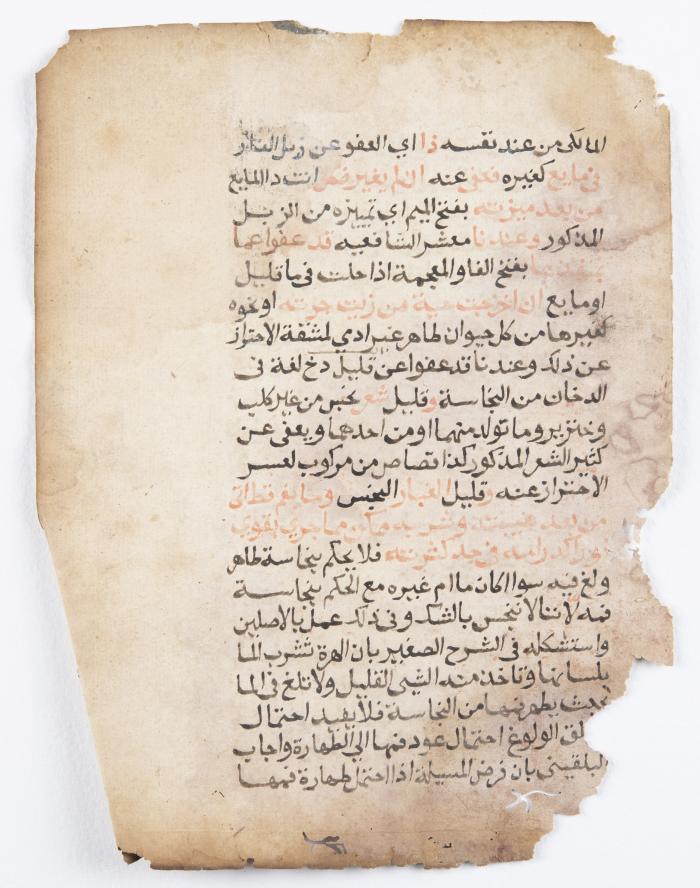 المالكي من عند نفسه ذا اي العفو عن زبل الفار
في مايع كغيره فعفي عنه ان لم يغير فمن المايع
من بعد ميزته بفتح الميم اي تمييزه من الزبل
المذكور وعندنا معشر الشافعيه قد عفوا عما
بمنفذها بفتح الفا والمعجمة اذا حلت في ما قليل
او مايع ان اخرجت حية من زيت جرته او نحوه
كغيرها من كل حيوان طاهر غير ادمي لمشقة الاحتراز
عن ذلك وعندنا قد عفوا عن قليل دخ لغة في
الدخان من النجاسة وقليل شعر نجس من غير كلب
وخنزير وما تولد منهما او من احدهما ويعفى عن
كثير الشعر المذكور كذا قصاص من مركوب لعسر
الاحتراز عنه وقليل الغبار النجس وما بفم قط اتى
من بعد غيبته وشربه ممكن ما جري بقوي
او راكد رابه في حد كثرته فلا يحكم بنجاسة طاهر
ولغ فيه سوا اكان ما ام غيره مع الحكم بنجاسة
فمه لاننا لا ننجس بالشك وفي ذلك عمل بالاصلين
واستشكله في الشرح الصغير بان الهرة تشرب الما
بلسانها وتاخذ منه الشي القليل ولا تلغ في الما
بحيث يطهر فمها من النجاسة فلا يفيد احتمال
لق الولوغ احتمال عود فمها الي الطهارة واجاب
البلقيني بان فرض المسيلة اذا احتمل طهارة فمها